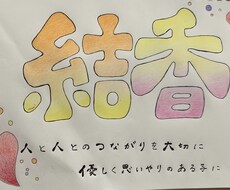 結香
人と人とのつながりを大切に
優しく思いやりのある子に